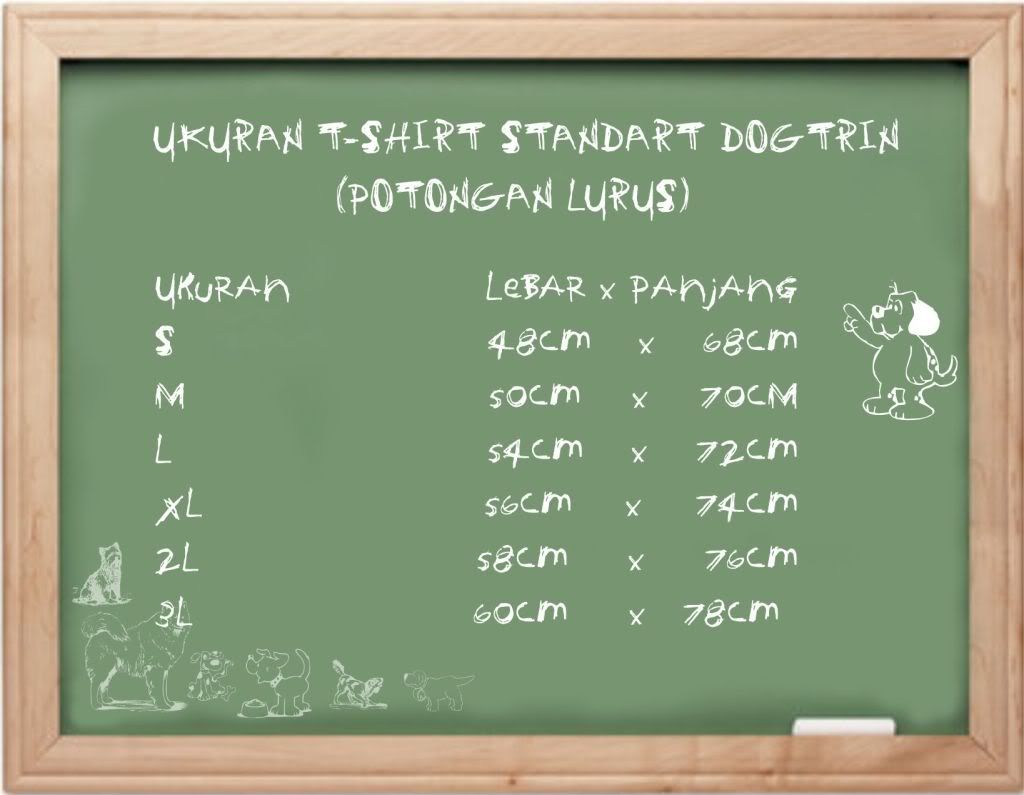 UKURAN T-SHIRT STANDART DOGTRIN
(POTONGAN LURUS)
UKuRAn LeBAR x PAnjAnG
S 48cm x 68cm
M 50cm x 70cM
L 54cm x 72cm
XL 56cm x 74cm
2L 58cm x 76cm
3L 60cm x 78cm